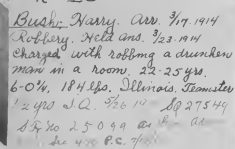 Bush, Harry. Arr. 3/17.1914
Robbery. Held Ans. 3/23-1914
Charged with robbing a drunken
man in a room. 22-25 yrs.
6-0¼. 184 lbs. Illinois. Teamster
1 2 yrs 5/26 19 SQ 27549
No 25099
P.C.